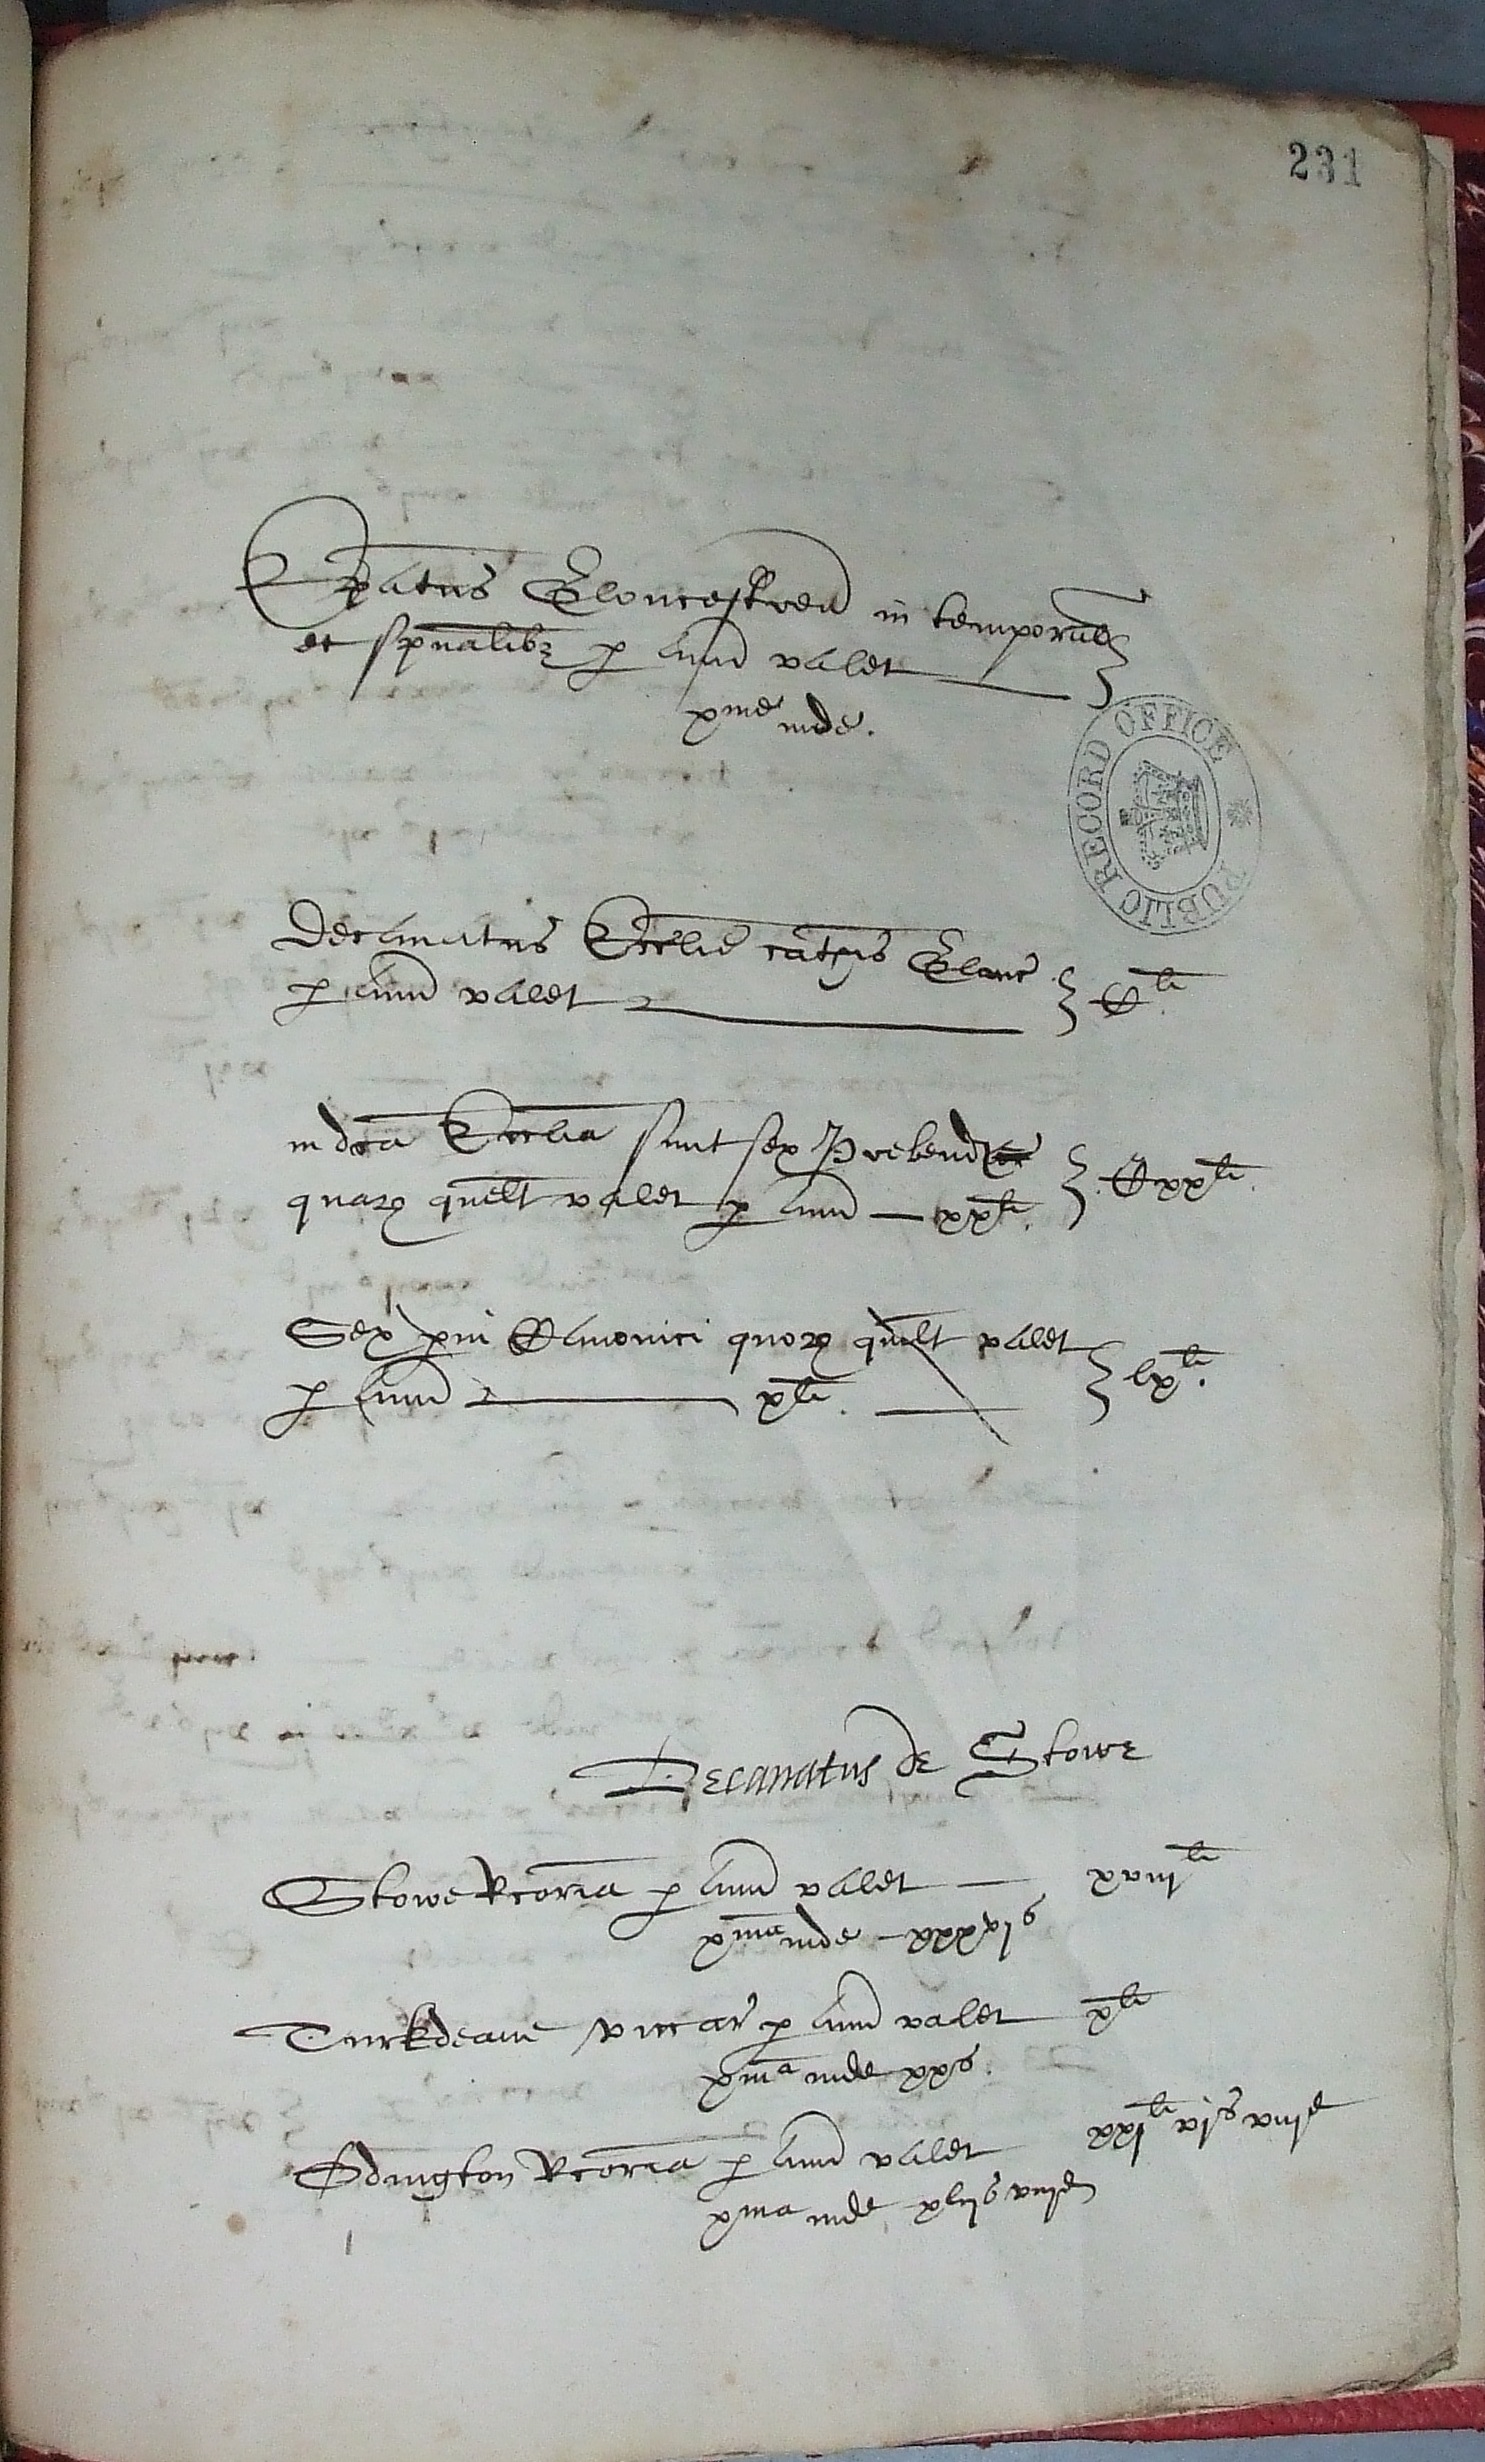 231
Epatus Gloucestren in temporal
et spualibz p ann valet
xme inde.
PUBLIC RECORD OFFICE
Decanatus Ecclie cathis Glouc
p ann valet Cli
in dca Ecclia sunt sex Prebend
quarz quelt valet p ann xxli. Cxxli.
Sex pui Canonici quorz quelt valet
p ann xli. lxli.
Decanatus de Stowe
Stowe Rcoria p ann valet xviijli
xma inde xxxvjs
Turkdeane viccar p ann valet xli
xma inde xxs.
Odington Rcoria p ann valet xxjli vjs viijd
xma inde xlijs viijd